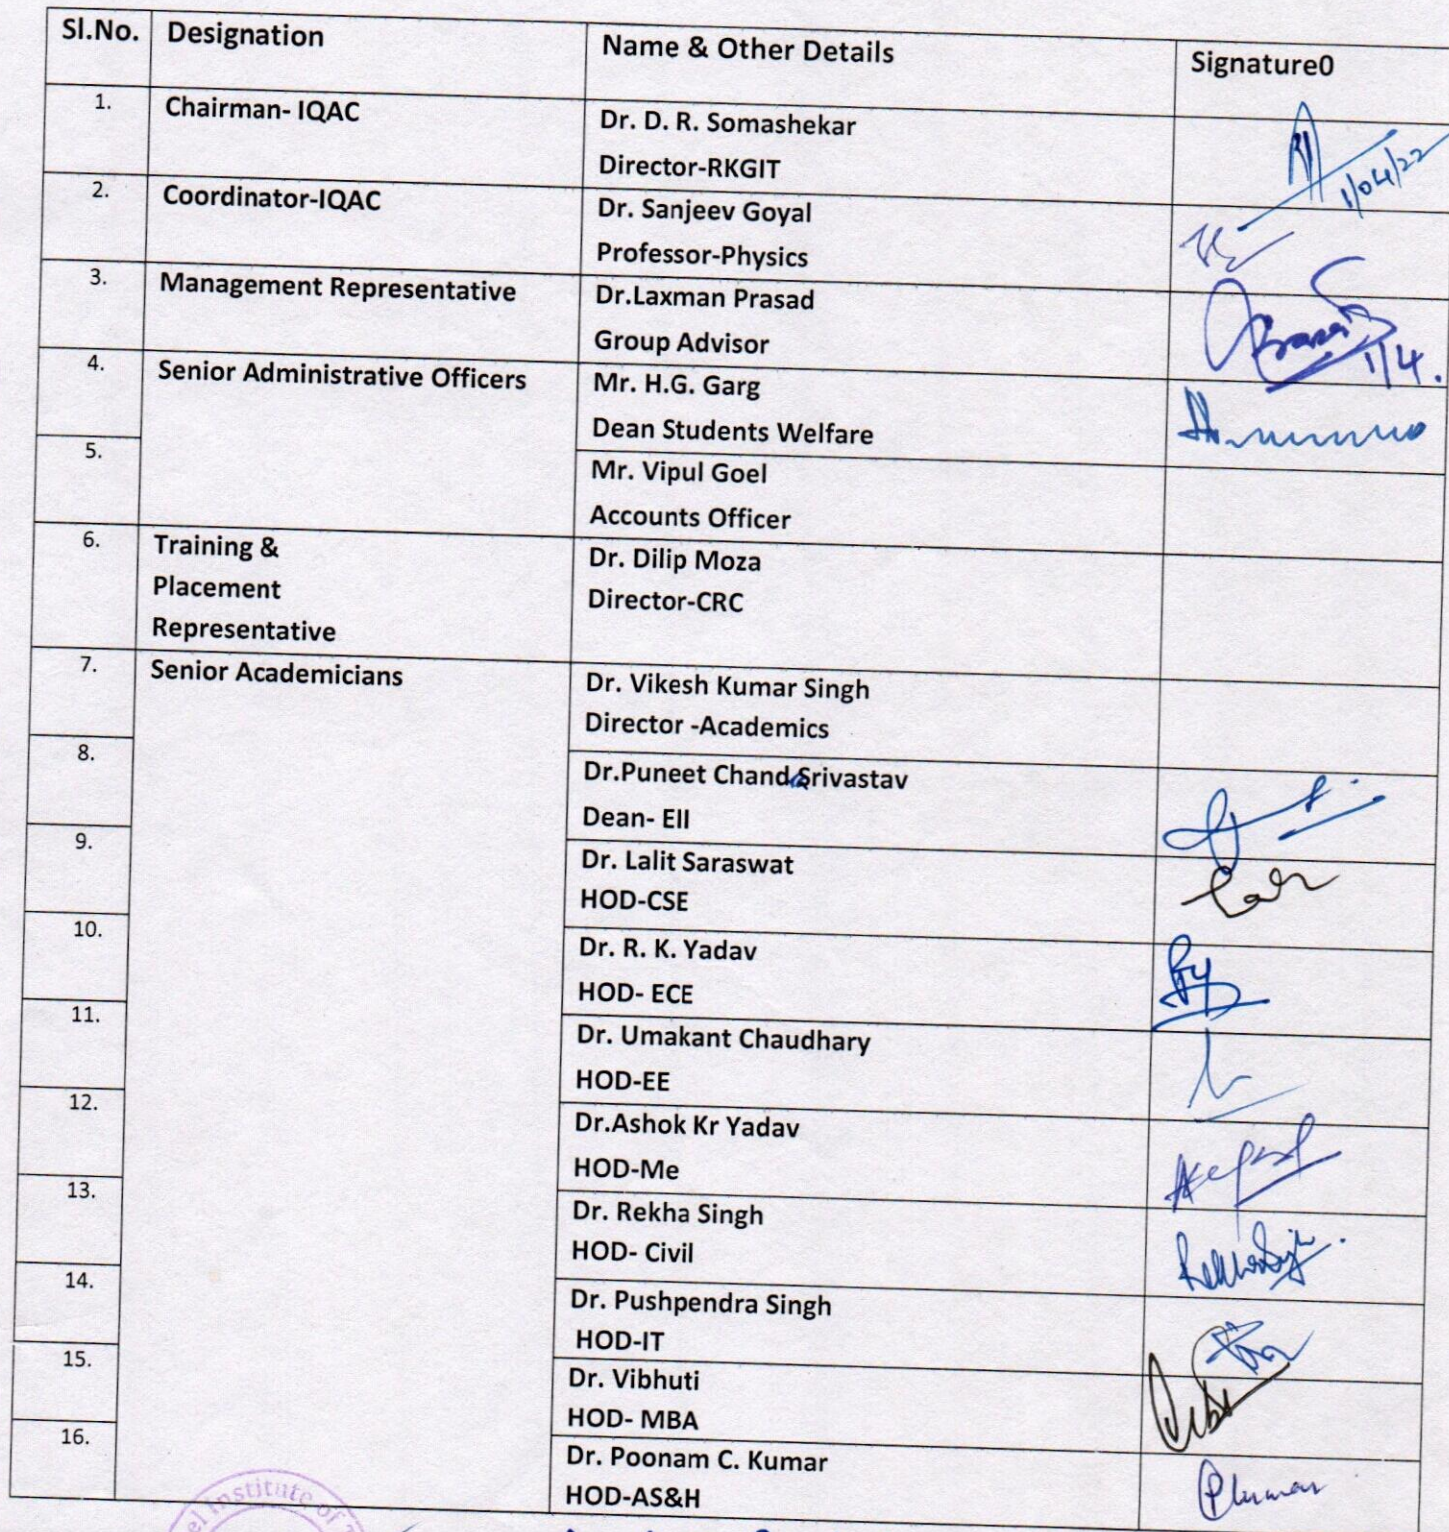 Sl.No. Designation Name & Other Details Signature0
1. Chairman- IQAC Dr. D. R. Somashekar
Director-RKGIT
1/04/22
2. Coordinator-IQAC Dr. Sanjeev Goyal
Professor-Physics
3. Management Representative Dr.Laxman Prasad
Group Advisor
1/4.
4. Senior Administrative Officers Mr. H.G. Garg
Dean Students Welfare
5. Mr. Vipul Goel
Accounts Officer
6. Training & Dr. Dilip Moza
Placement Director-CRC
Representative
7. Senior Academicians Dr. Vikesh Kumar Singh
Director -Academics
8. Dr.Puneet Chandra Srivastav
Dean- EII
9. Dr. Lalit Saraswat
HOD-CSE
10. Dr. R. K. Yadav
HOD- ECE
11. Dr. Umakant Chaudhary
HOD-EE
12. Dr.Ashok Kr Yadav
HOD-Me
13. Dr. Rekha Singh
HOD- Civil
RekhaSingh
14. Dr. Pushpendra Singh
HOD-IT
15. Dr. Vibhuti
HOD- MBA
16. Dr. Poonam C. Kumar
HOD-AS&H
PKumar
Institute of